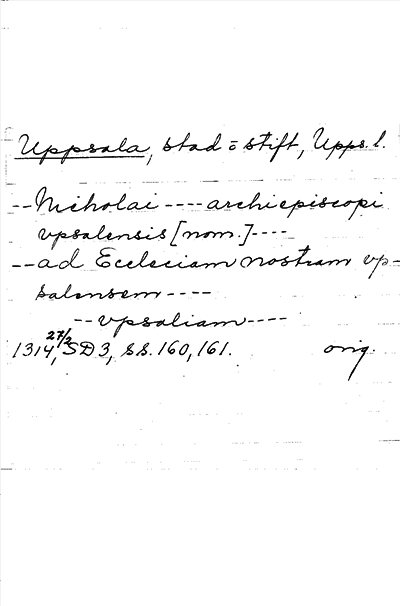 Uppsala, stad o stift, Upps. l.
-- Nicholai ---- archiepiscopi
vpsalensis [nom.] ----
-- ad Ecclesiam nostram vp-
salensem ----
-- vpsaliam ----
1314 27/2, SD 3, ss. 160, 161. orig.